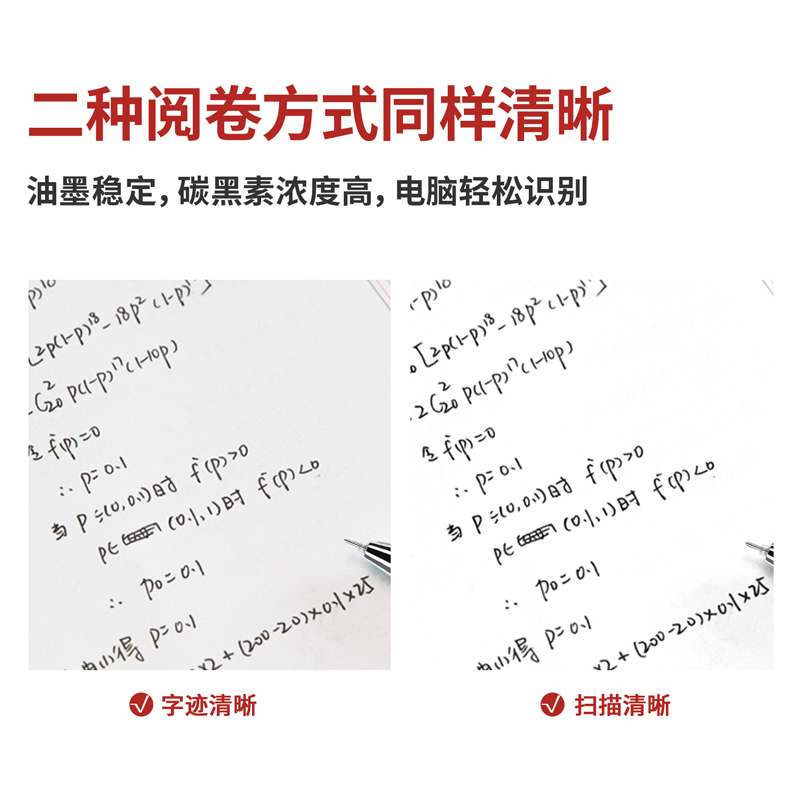 二种阅卷方式同样清晰
油墨稳定，碳黑素浓度高，电脑轻松识别
[2p(1-p)¹⁸-18p²(1-p)¹⁷]
2C²₂₀ p(1-p)¹⁷(1-10p)
f'(p)=0
∴ p=0.1
当 p∈(0,0.1)时 f'(p)>0
p∈ (0.1,1)时 f'(p)<0
∴ p₀=0.1
得 p=0.1
×2+(200-20)×0.1×25
-p)¹⁸
[2p(1-p)¹⁸-18p²(1-p)¹⁷]
2C²₂₀ p(1-p)¹⁷(1-10p)
f'(p)=0
∴ p=0.1
当 p∈(0,0.1)时 f'(p)>0
p∈ (0.1,1)时 f'(p)<0
∴ p₀=0.1
得 p=0.1
×2+(200-20)×0.1×25
字迹清晰
扫描清晰